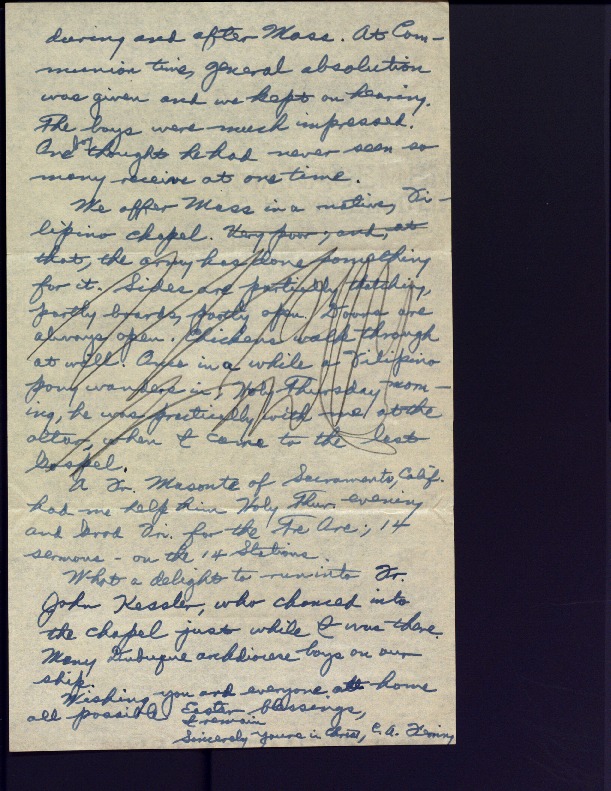 during and after Mass. At Com-
munion time, general absolution
was given and we kept on hearing.
The boys were much impressed.
One thought he had never seen so
many receive at one time.
We offer Mass in a native, Fi-
lipino chapel. Very poor; and, at
that, the army has done something
for it. Sides are partially thatching,
partly boards, partly open. Doors are
always open. Chickens walk through
at will. Once in a while a Filipino
pony wanders in; Holy Thursday morn-
ing, he was practically with me at the
altar, when I came to the last
Gospel.
A Fr. Masonte of Sacramento, Calif.
had me help him Holy Thur. evening
and Good Fri. for the Tre Ore; 14
sermons - on the 14 Stations.
What a delight to run into Fr.
John Kessler, who chanced into
the chapel just while I was there.
Many Dubuque archdiocese boys on our
ship.
Wishing you and everyone at home
all possible Easter blessings,
I remain
Sincerely yours in Christ, C. A.